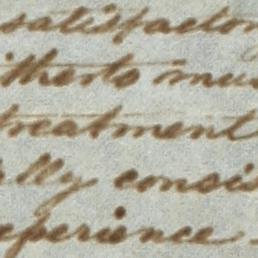 satisfacto
itherto inv
treatment
ally consis
xperience -